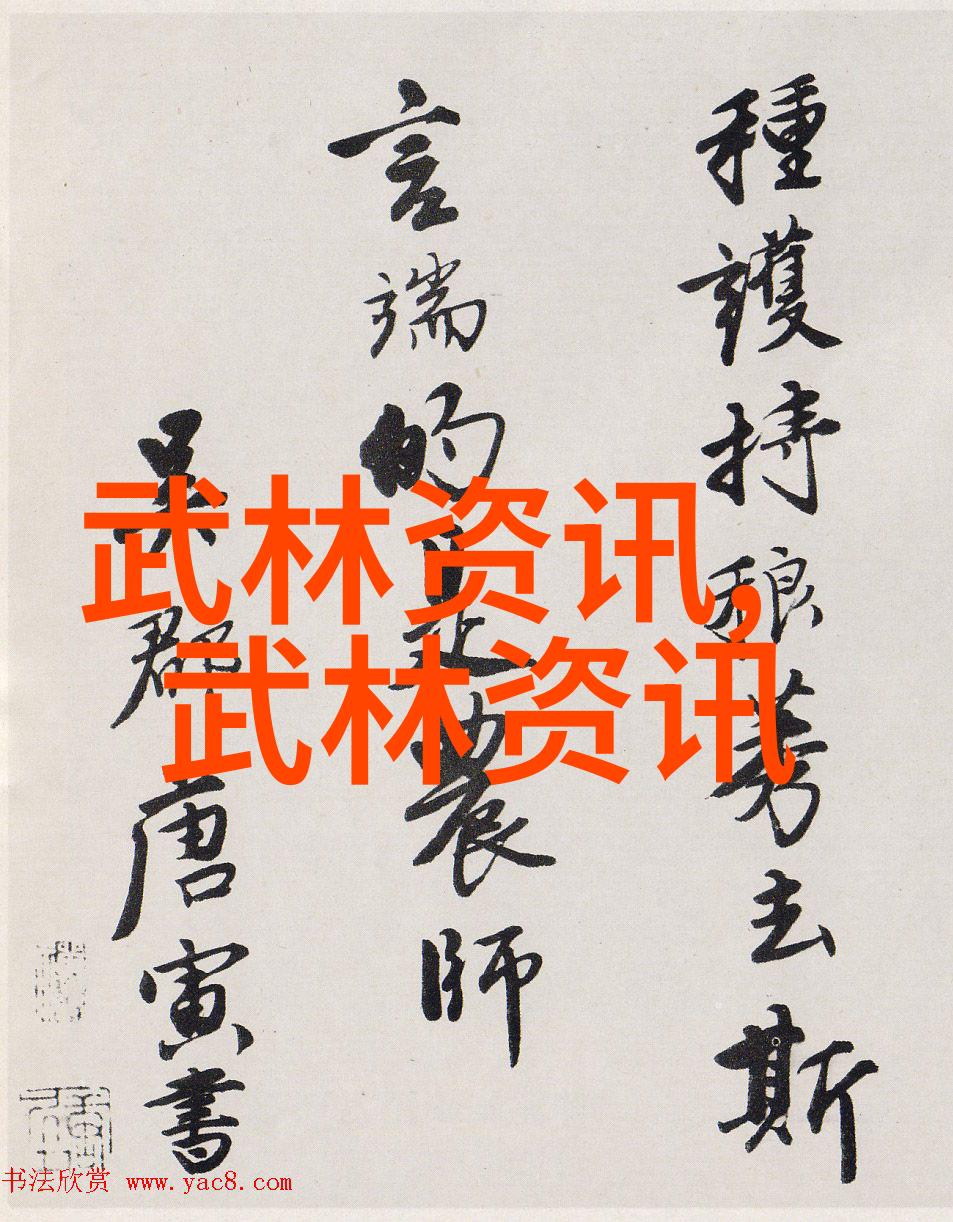 種護持稂莠去斯
言端的是農師
吳郡唐寅書
武林资讯,
武林资讯
书法欣赏 www.yac8.com